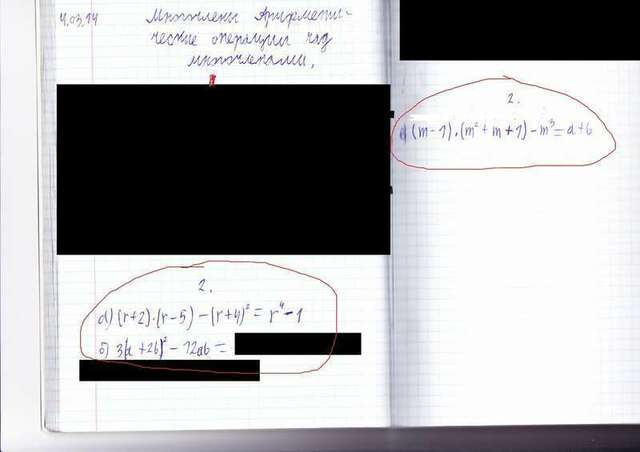 4.03.14
Многочлены Арифмети-
ческие операции над
многочленами.
2.
а) (r+2)·(r-5)-(r+4)² = r⁴-1
б) 3(a+2b)²-12ab =
2.
в) (m-1)·(m²+m+1)-m³=a+b